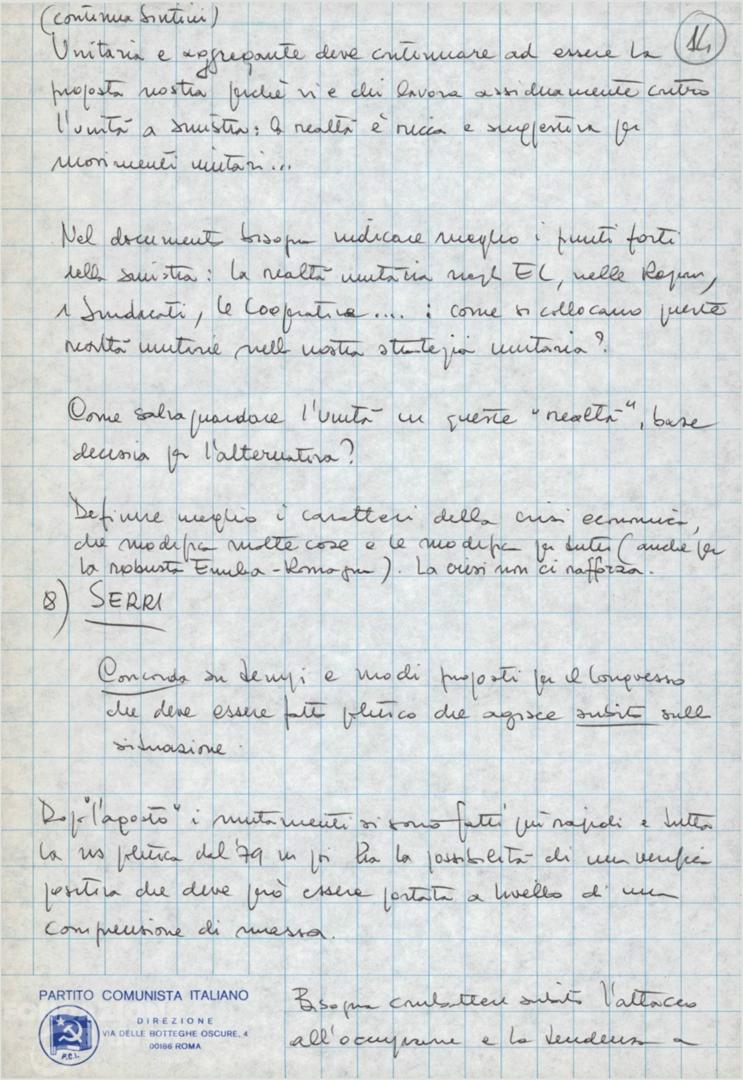 (continua Sintini)
14
Unitaria e aggregante deve continuare ad essere la
proposta nostra perchè vi è chi lavora assiduamente contro
l'unità a sinistra: la realtà è ricca e suggestiva per
movimenti unitari...
Nel documento bisogna indicare meglio i punti forti
della sinistra: la realtà unitaria negli EL, nelle Regioni,
i Sindacati, le Cooperative.... : come si collocano queste
realtà unitarie nella nostra strategia unitaria?
Come salvaguardare l'unità in queste "realtà", base
decisiva per l'alternativa?
Definire meglio i caratteri della crisi economica,
che modifica molte cose e le modifica per tutti (anche per
la robusta Emilia-Romagna). La crisi non ci rafforza.
8) SERRI
Concorda su tempi e modi proposti per il Congresso
che deve essere fatto politico che agisce subito sulla
situazione.
Dopo "l'agosto" i mutamenti si sono fatti più rapidi e tutta
la ns politica dal '79 in poi ha la possibilità di una verifica
positiva che deve però essere portata a livello di una
comprensione di massa.
Bisogna combattere subito l'attacco
all'occupazione e la tendenza a
PARTITO COMUNISTA ITALIANO
DIREZIONE
VIA DELLE BOTTEGHE OSCURE, 4
00186 ROMA
P.C.I.